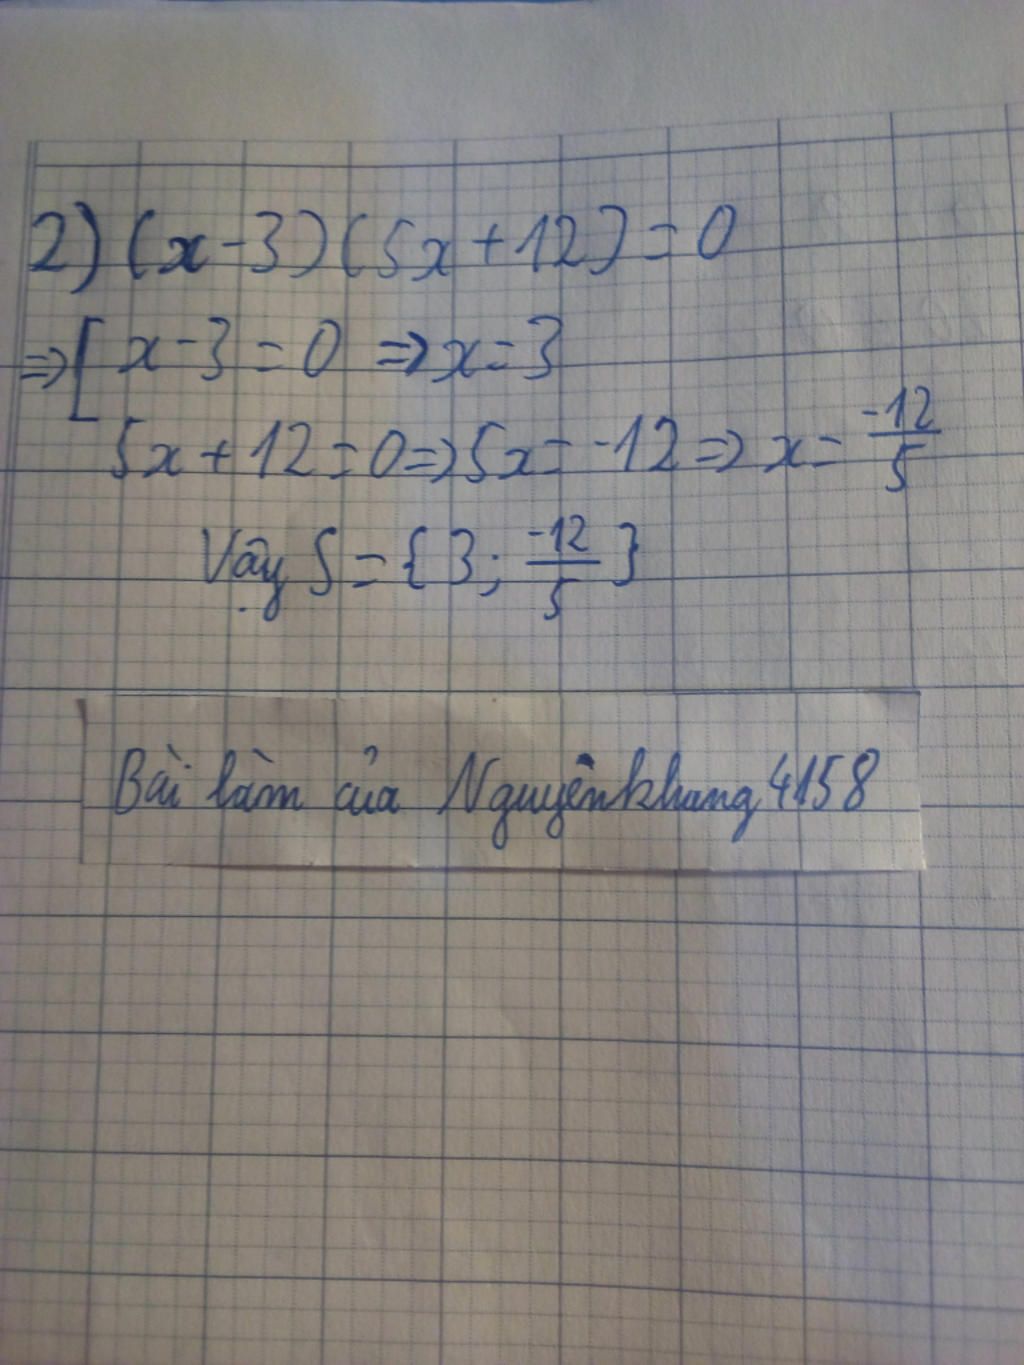 2) (x-3)(5x+12)=0
⇒[ x-3=0 ⇒x=3
5x+12=0⇒5x=-12⇒x=-12/5
Vậy S={3; -12/5}
Bài làm của Nguyênkhang4158